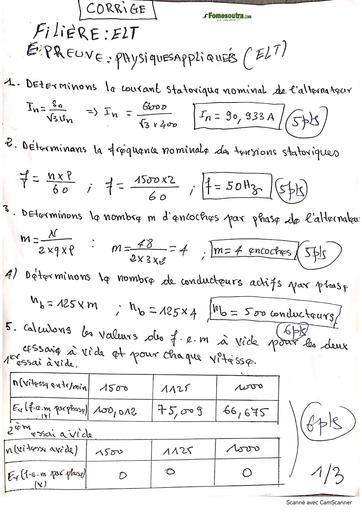 CORRIGE
Fomesoutra.com
FiLiÈRE: ELT
EPREUVE: PHYSIQUES APPLIQUÉS (ELT)
1. Determinons le courant statorique nominal de l'alternateur
In = Sn / √3 Un => In = / √3 x 400 In = 90,933A 5pts
2. Déterminons la fréquence nominale des tensions statoriques
f = n x P / 60 ; f = 1500 x 2 / 60 ; f = 50 Hz 5pts
3. Determinons le nombre m d'encoches par phase de l'alternateur
m = N / 2 x q x P : m = 48 / 2 x 3 x 2 = 4 ; m = 4 encoches 5pts
4) Déterminons le nombre de conducteurs actifs par phase
nb = 125 x m ; nb = 125 x 4 nb = 500 conducteurs
6pts
5. Calculons les valeurs des f.e.m à vide pour les deux
essais à vide et pour chaque vitesse.
1er essai à vide.
n (vitesse en tr/min 1500 1125 1000
Ev (f.e.m par phase) (V) 100,012 75,009 66,675
2èm essai à vide
6pts
n (vitesse à vide) 1500 1125 1000
Ev (f.e.m par phase) (V) 0 0 0
1/3
Scanné avec CamScanner